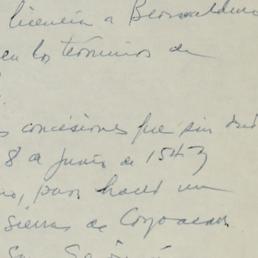 licencia a Bernaldino
en los términos de
concesiones fue sin
8 de junio de 1543
para hacer un
sierras de Coyoacan